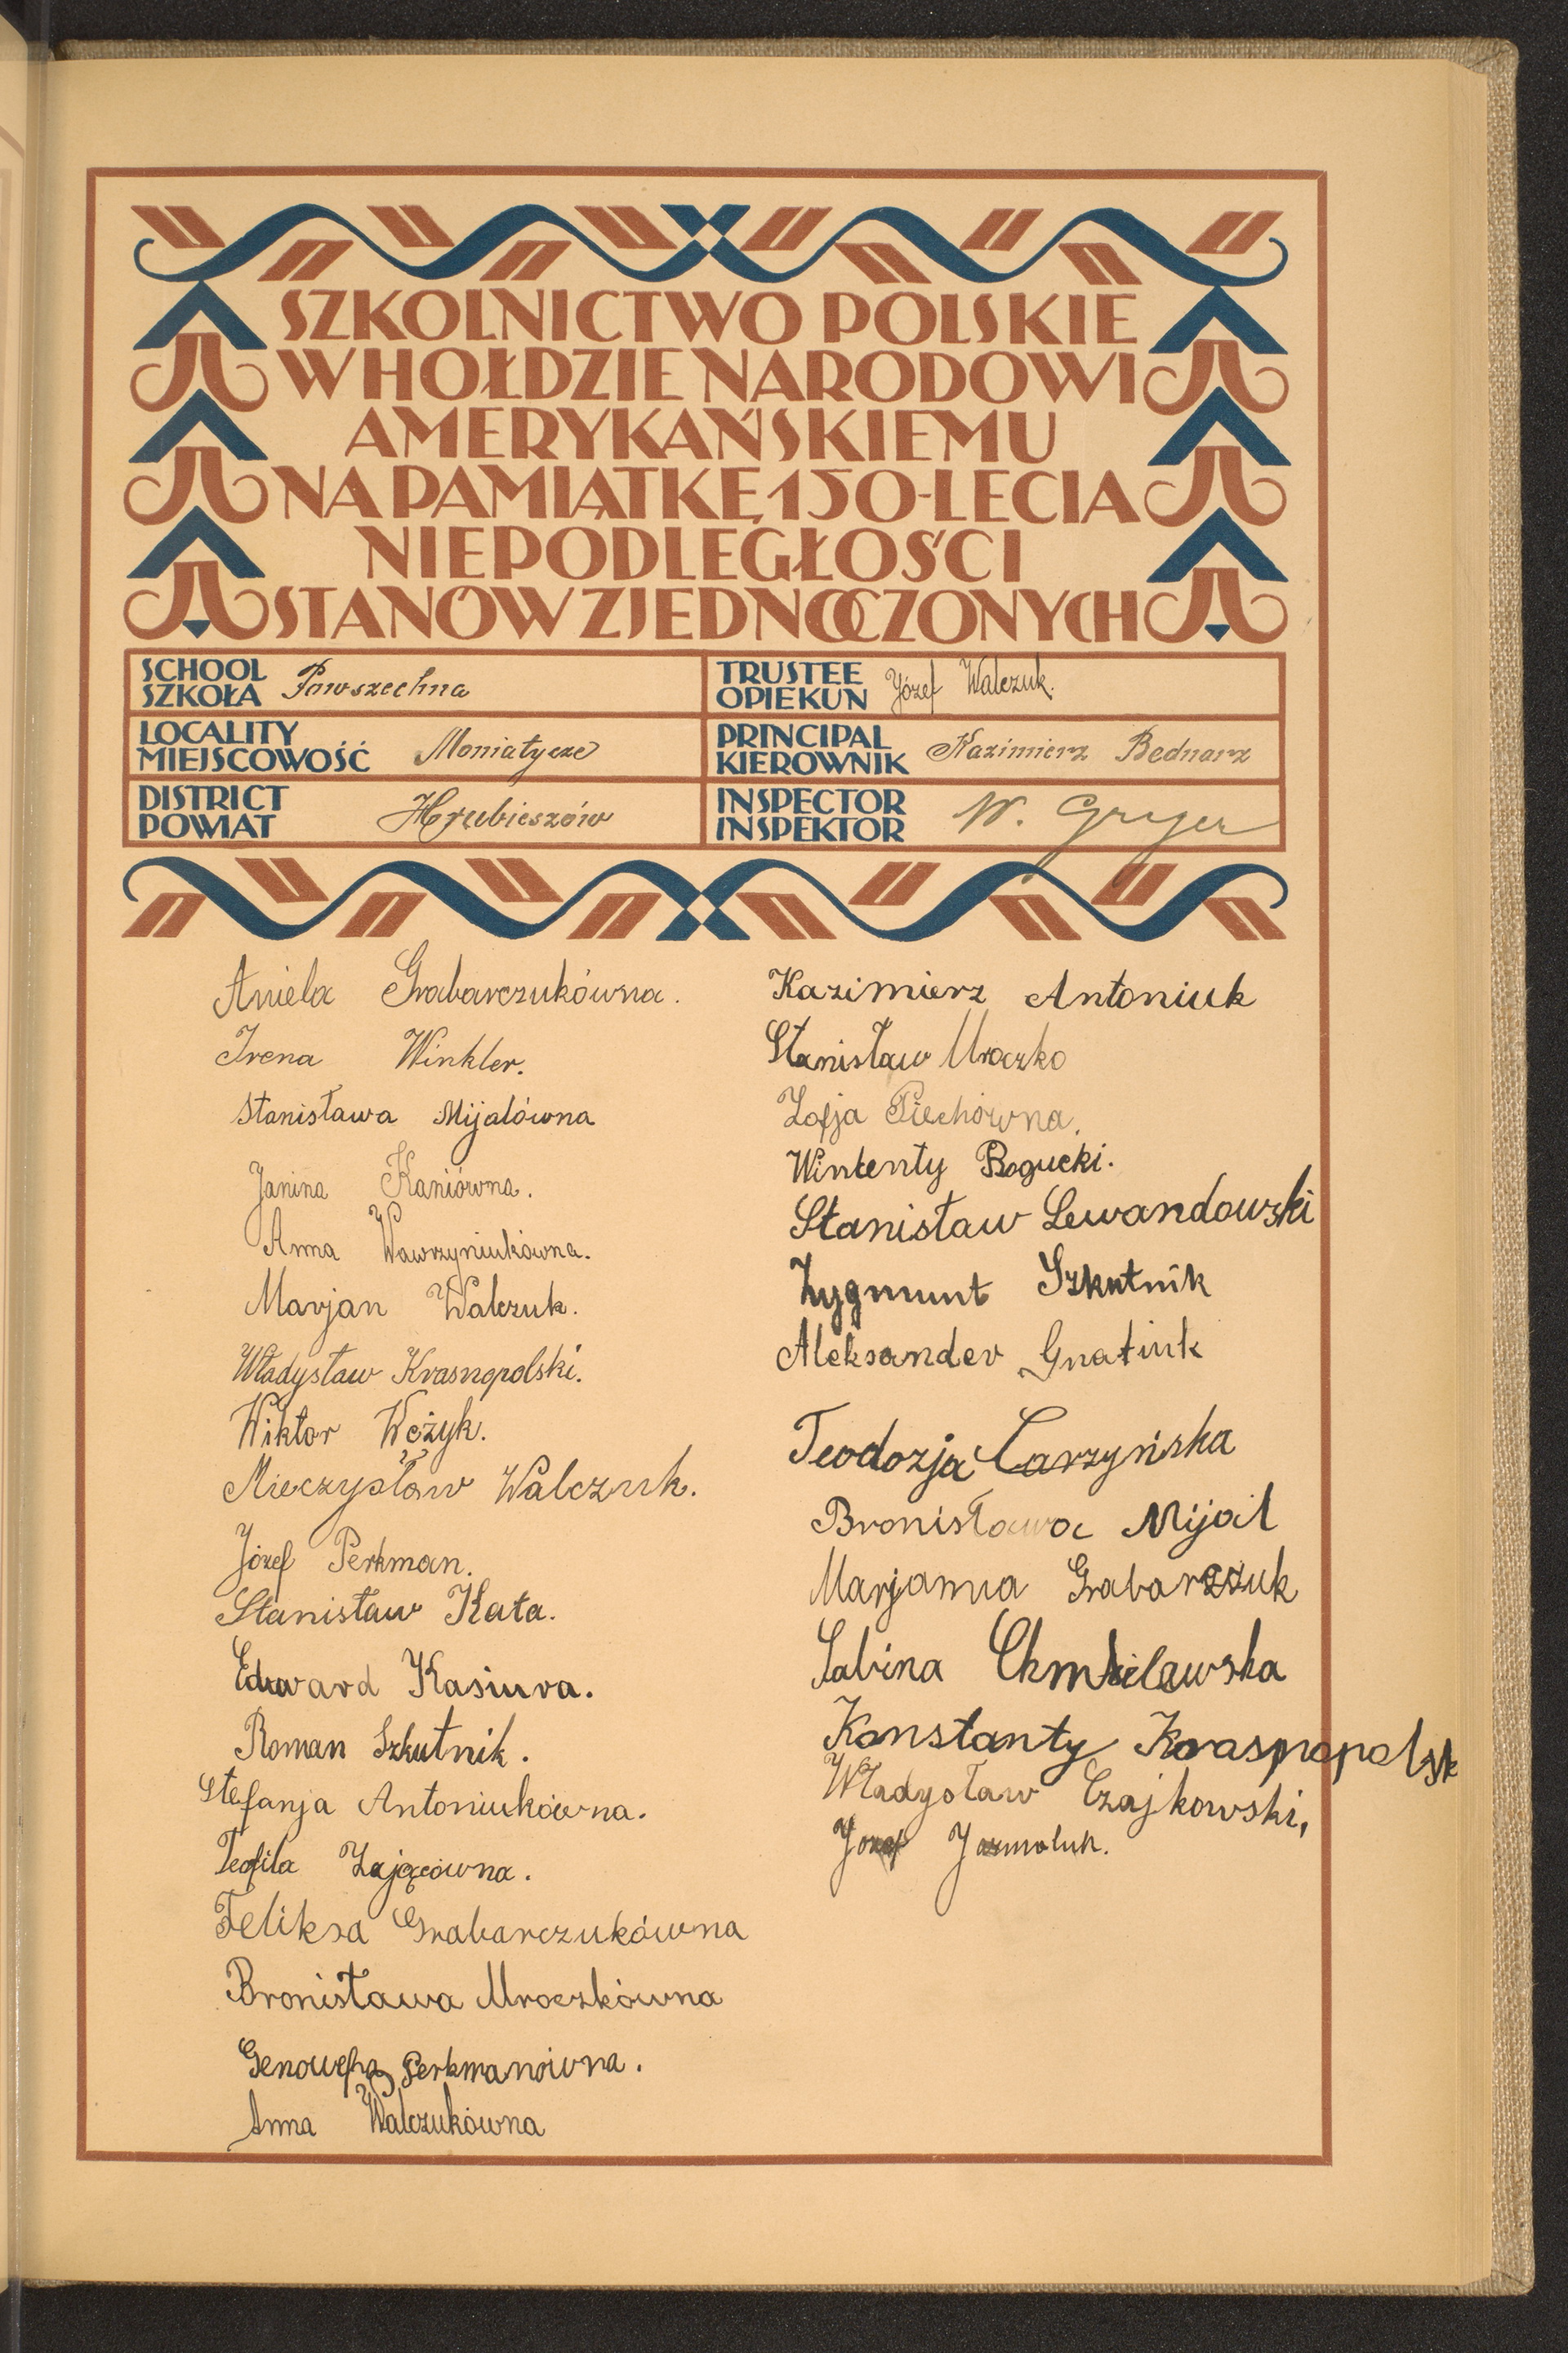 SZKOLNICTWO POLSKIE
W HOŁDZIE NARODOWI
AMERYKAŃSKIEMU
NA PAMIĄTKĘ 150-LECIA
NIEPODLEGŁOŚCI
STANÓW ZJEDNOCZONYCH
SCHOOL
SZKOŁA Powszechna
TRUSTEE
OPIEKUN Józef Walczuk.
LOCALITY
MIEJSCOWOŚĆ Moniatycze
PRINCIPAL
KIEROWNIK Kazimierz Bednarz
DISTRICT
POWIAT Hrubieszów
INSPECTOR
INSPEKTOR W. Gryer
Aniela Grabarczukówna.
Irena Winkler.
Stanisława Mijalówna
Janina Kaniówna.
Anna Wawrzyniukówna.
Marjan Walczuk.
Władysław Krasnopolski.
Wiktor Wożyk.
Mieczysław Walczuk.
Józef Perkman.
Stanisław Kata.
Edward Kasiura.
Roman Szkutnik.
Stefanja Antoniukówna.
Teofila Zającówna.
Feliksa Grabarczukówna
Bronisława Mroczkówna
Genowefa Perkmanówna.
Anna Walczukówna
Kazimierz Antoniuk
Stanisław Mroczko
Zofja Piechówna.
Wintenty Bogucki.
Stanisław Lewandowski
Zygmunt Szkutnik
Aleksander Gnatiuk
Teodozja Carzyńska
Bronisława Mijal
Marjanna Grabarczuk
Sabina Chmielewska
Konstanty Krasnopolsk
Władysław Czajkowski,
Józef Jarmoluk.